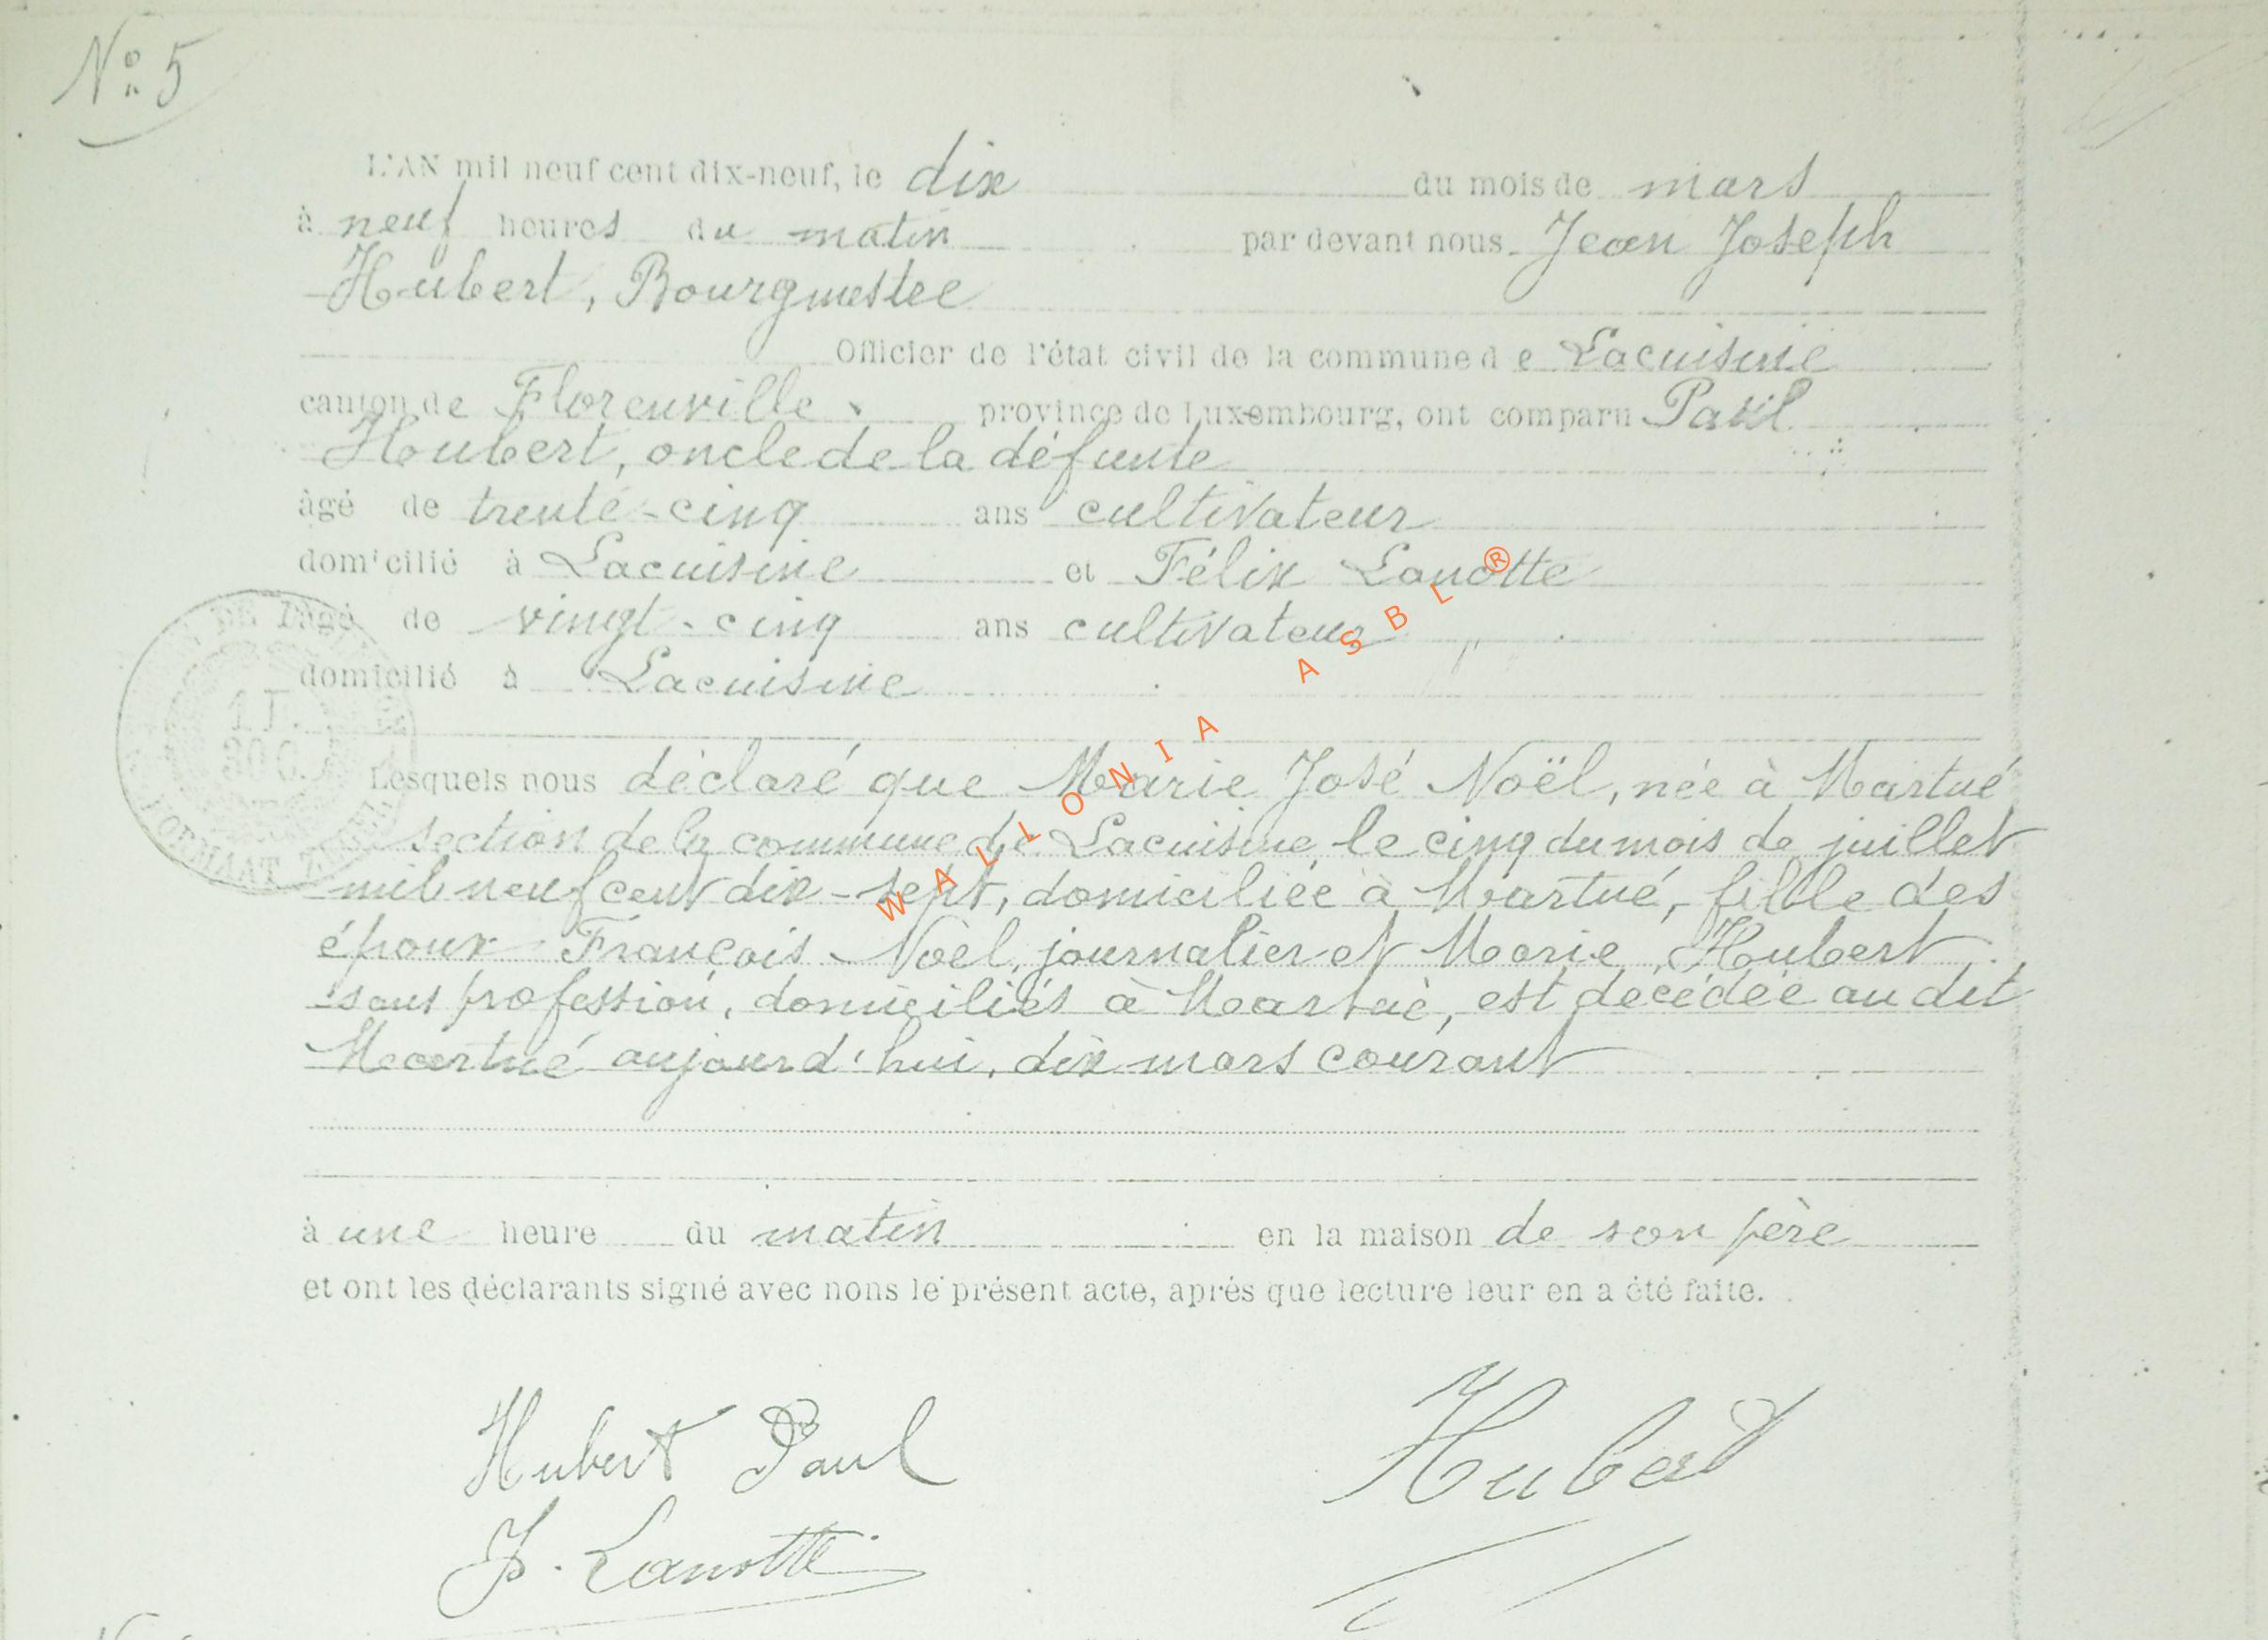 N° 5
L'AN mil neuf cent dix-neuf, le dix du mois de mars
à neuf heures du matin par devant nous Jean Joseph
Hubert, Bourgmestre
Officier de l'état civil de la commune de Lacuisine
canton de Florenville province de Luxembourg, ont comparu Paul
Hubert, oncle de la défunte
âgé de trente-cinq ans cultivateur
domicilié à Lacuisine et Félix Lanotte
âgé de vingt-cinq ans cultivateur
domicilié à Lacuisine
Lesquels nous déclaré que Marie José Noël, née à Martué
section de la commune de Lacuisine, le cinq du mois de juillet
mil neuf cent dix-sept, domiciliée à Martué, fille des
époux François Noël, journalier et Marie Hubert
sans profession, domiciliés à Martué, est décédée au dit
Martué aujourd'hui, dix mars courant
à une heure du matin en la maison de son père
et ont les déclarants signé avec nous le présent acte, après que lecture leur en a été faite.
Hubert Paul
Hubert
F. Lanotte
WALLONIA ASBL ®